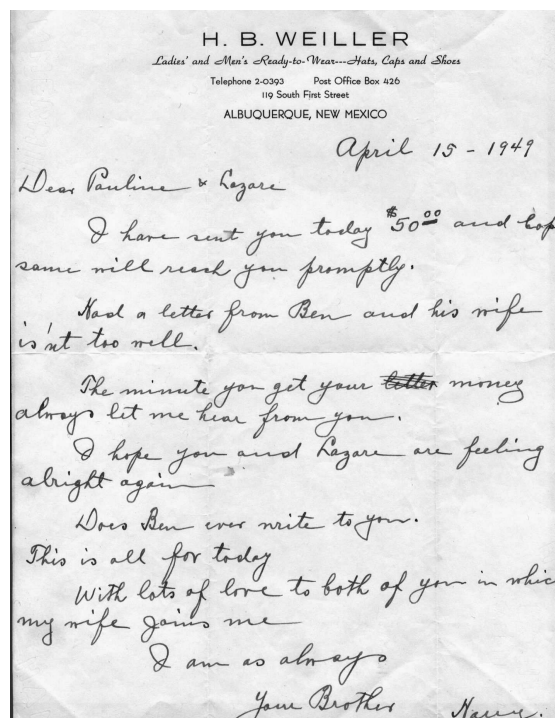 H. B. WEILLER
Ladies' and Men's Ready-to-Wear---Hats, Caps and Shoes
Telephone 2-0393 Post Office Box 426
119 South First Street
ALBUQUERQUE, NEW MEXICO
April 15 - 1949
Dear Pauline & Lazare
I have sent you today $50.00 and hop
same will reach you promptly.
Had a letter from Ben and his wife
is'nt too well.
The minute you get your letter money
always let me hear from you.
I hope you and Lazare are feeling
alright again
Does Ben ever write to you.
This is all for today
With lots of love to both of you in whic
my wife joins me
I am as always
Your Brother Harry.